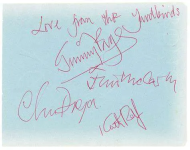 Love from the Yardbirds
Jimmy Page
Jim McCarty
Chris Dreja
Keith Relf